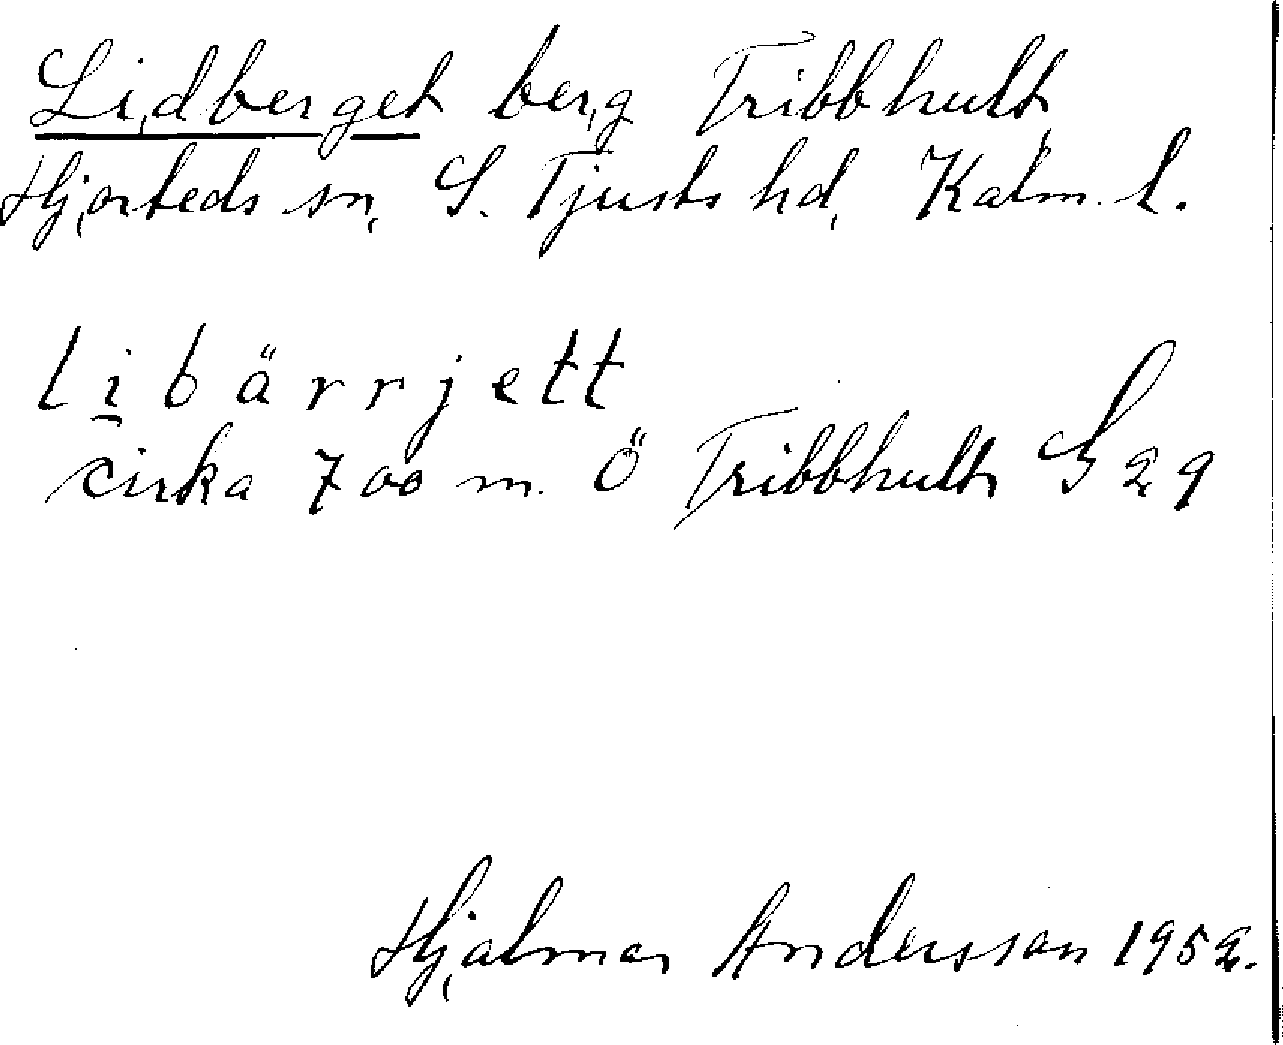 Lidberget berg Tribbhult,
Hjorteds sn, S. Tjusts hd, Kalm. l.
libärrjett
cirka 700 m. Ö Tribbhult S 29
Hjalmar Andersson 1952.